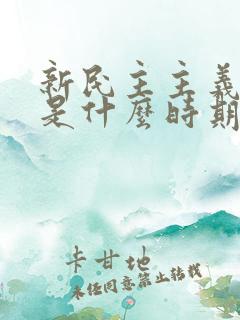 新民主主義
是什麼時期
卡甘地
未經同意禁止轉載